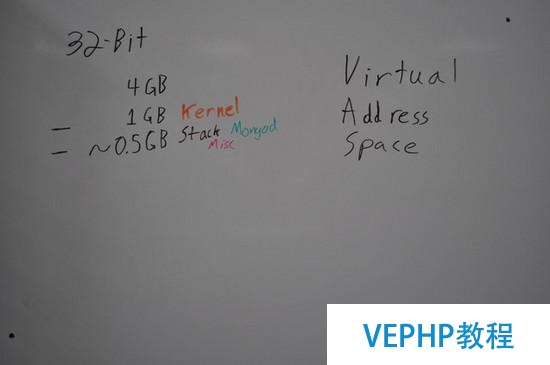 32-Bit
4 GB
— 1 GB Kernel
— ~0.5GB Stack Mongod
Misc
Virtual
Address
Space
VEPHP教程